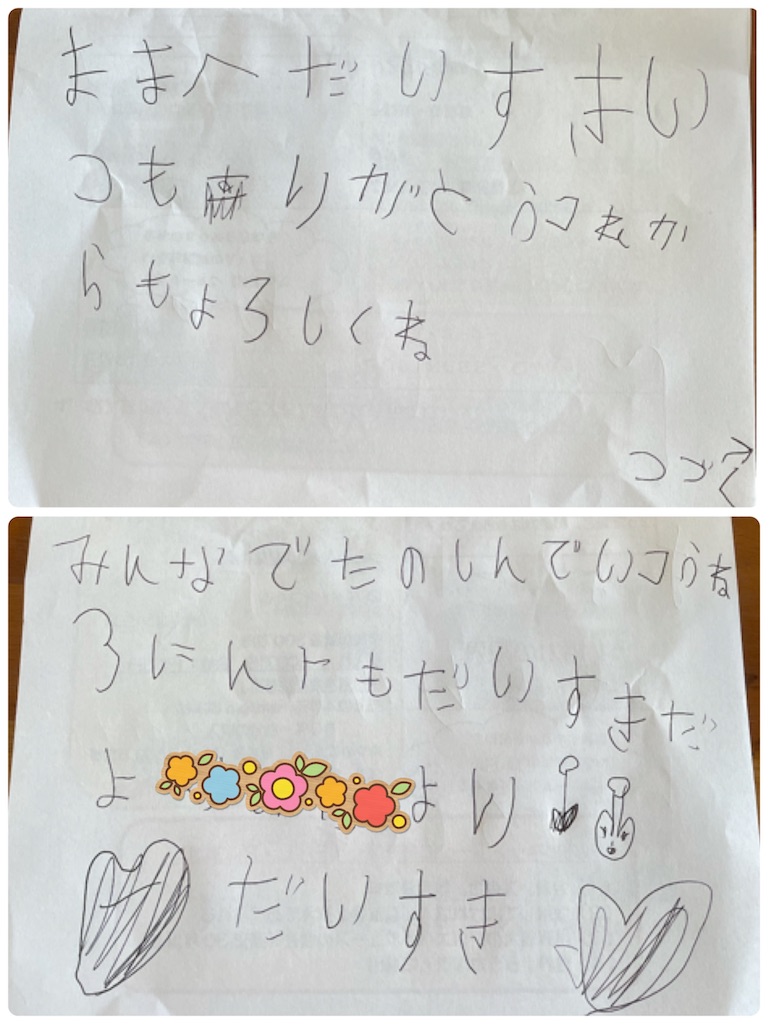 ままへだいすきい
つもりがとうこれか
らもよろしくね
つづく
みんなでたのしんでいこうね
3にんともだいすきだ
よ より
だいすき